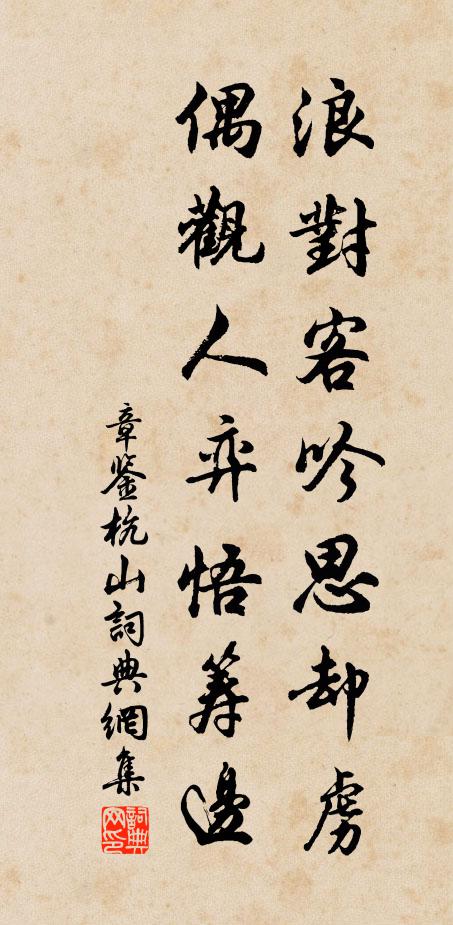 浪對客吟思却虜
偶觀人弈悟籌邊
章鉴杭山詞典網集
詞典网印